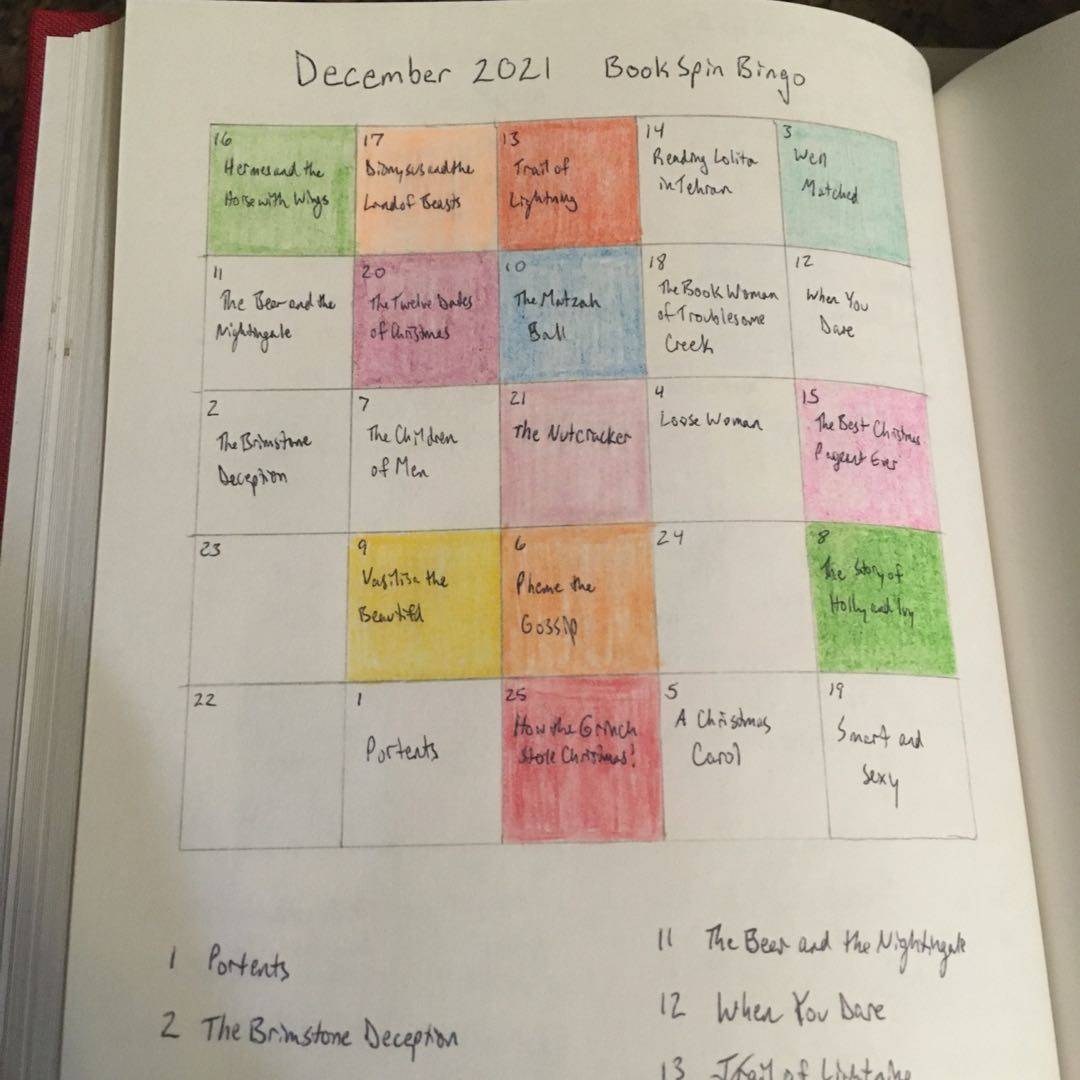 December 2021 BookSpin Bingo
16 17 13 14 3
Hermes and the Dionysus and the Trail of Reading Lolita Well
Horse with Wings Land of Beasts Lightning in Tehran Matched
11 20 10 18 12
The Bear and the The Twelve Dates The Matzah The Book Woman When You
Nightingale of Christmas Ball of Troublesome Dare
Creek
2 7 21 4 15
The Brimstone The Children The Nutcracker Loose Woman The Best Christmas
Deception of Men Pageant Ever
23 9 6 24 8
Vasilisa the Pheme the The Story of
Beautiful Gossip Holly and Ivy
22 1 25 5 19
Portents How the Grinch A Christmas Smart and
Stole Christmas! Carol Sexy
1 Portents
2 The Brimstone Deception
11 The Bear and the Nightingale
12 When You Dare
13 Trail of Lightning